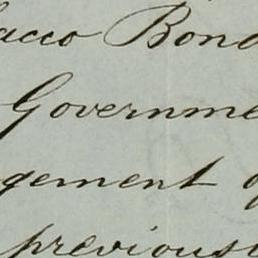 acco Bond
Governme
gement o
previous